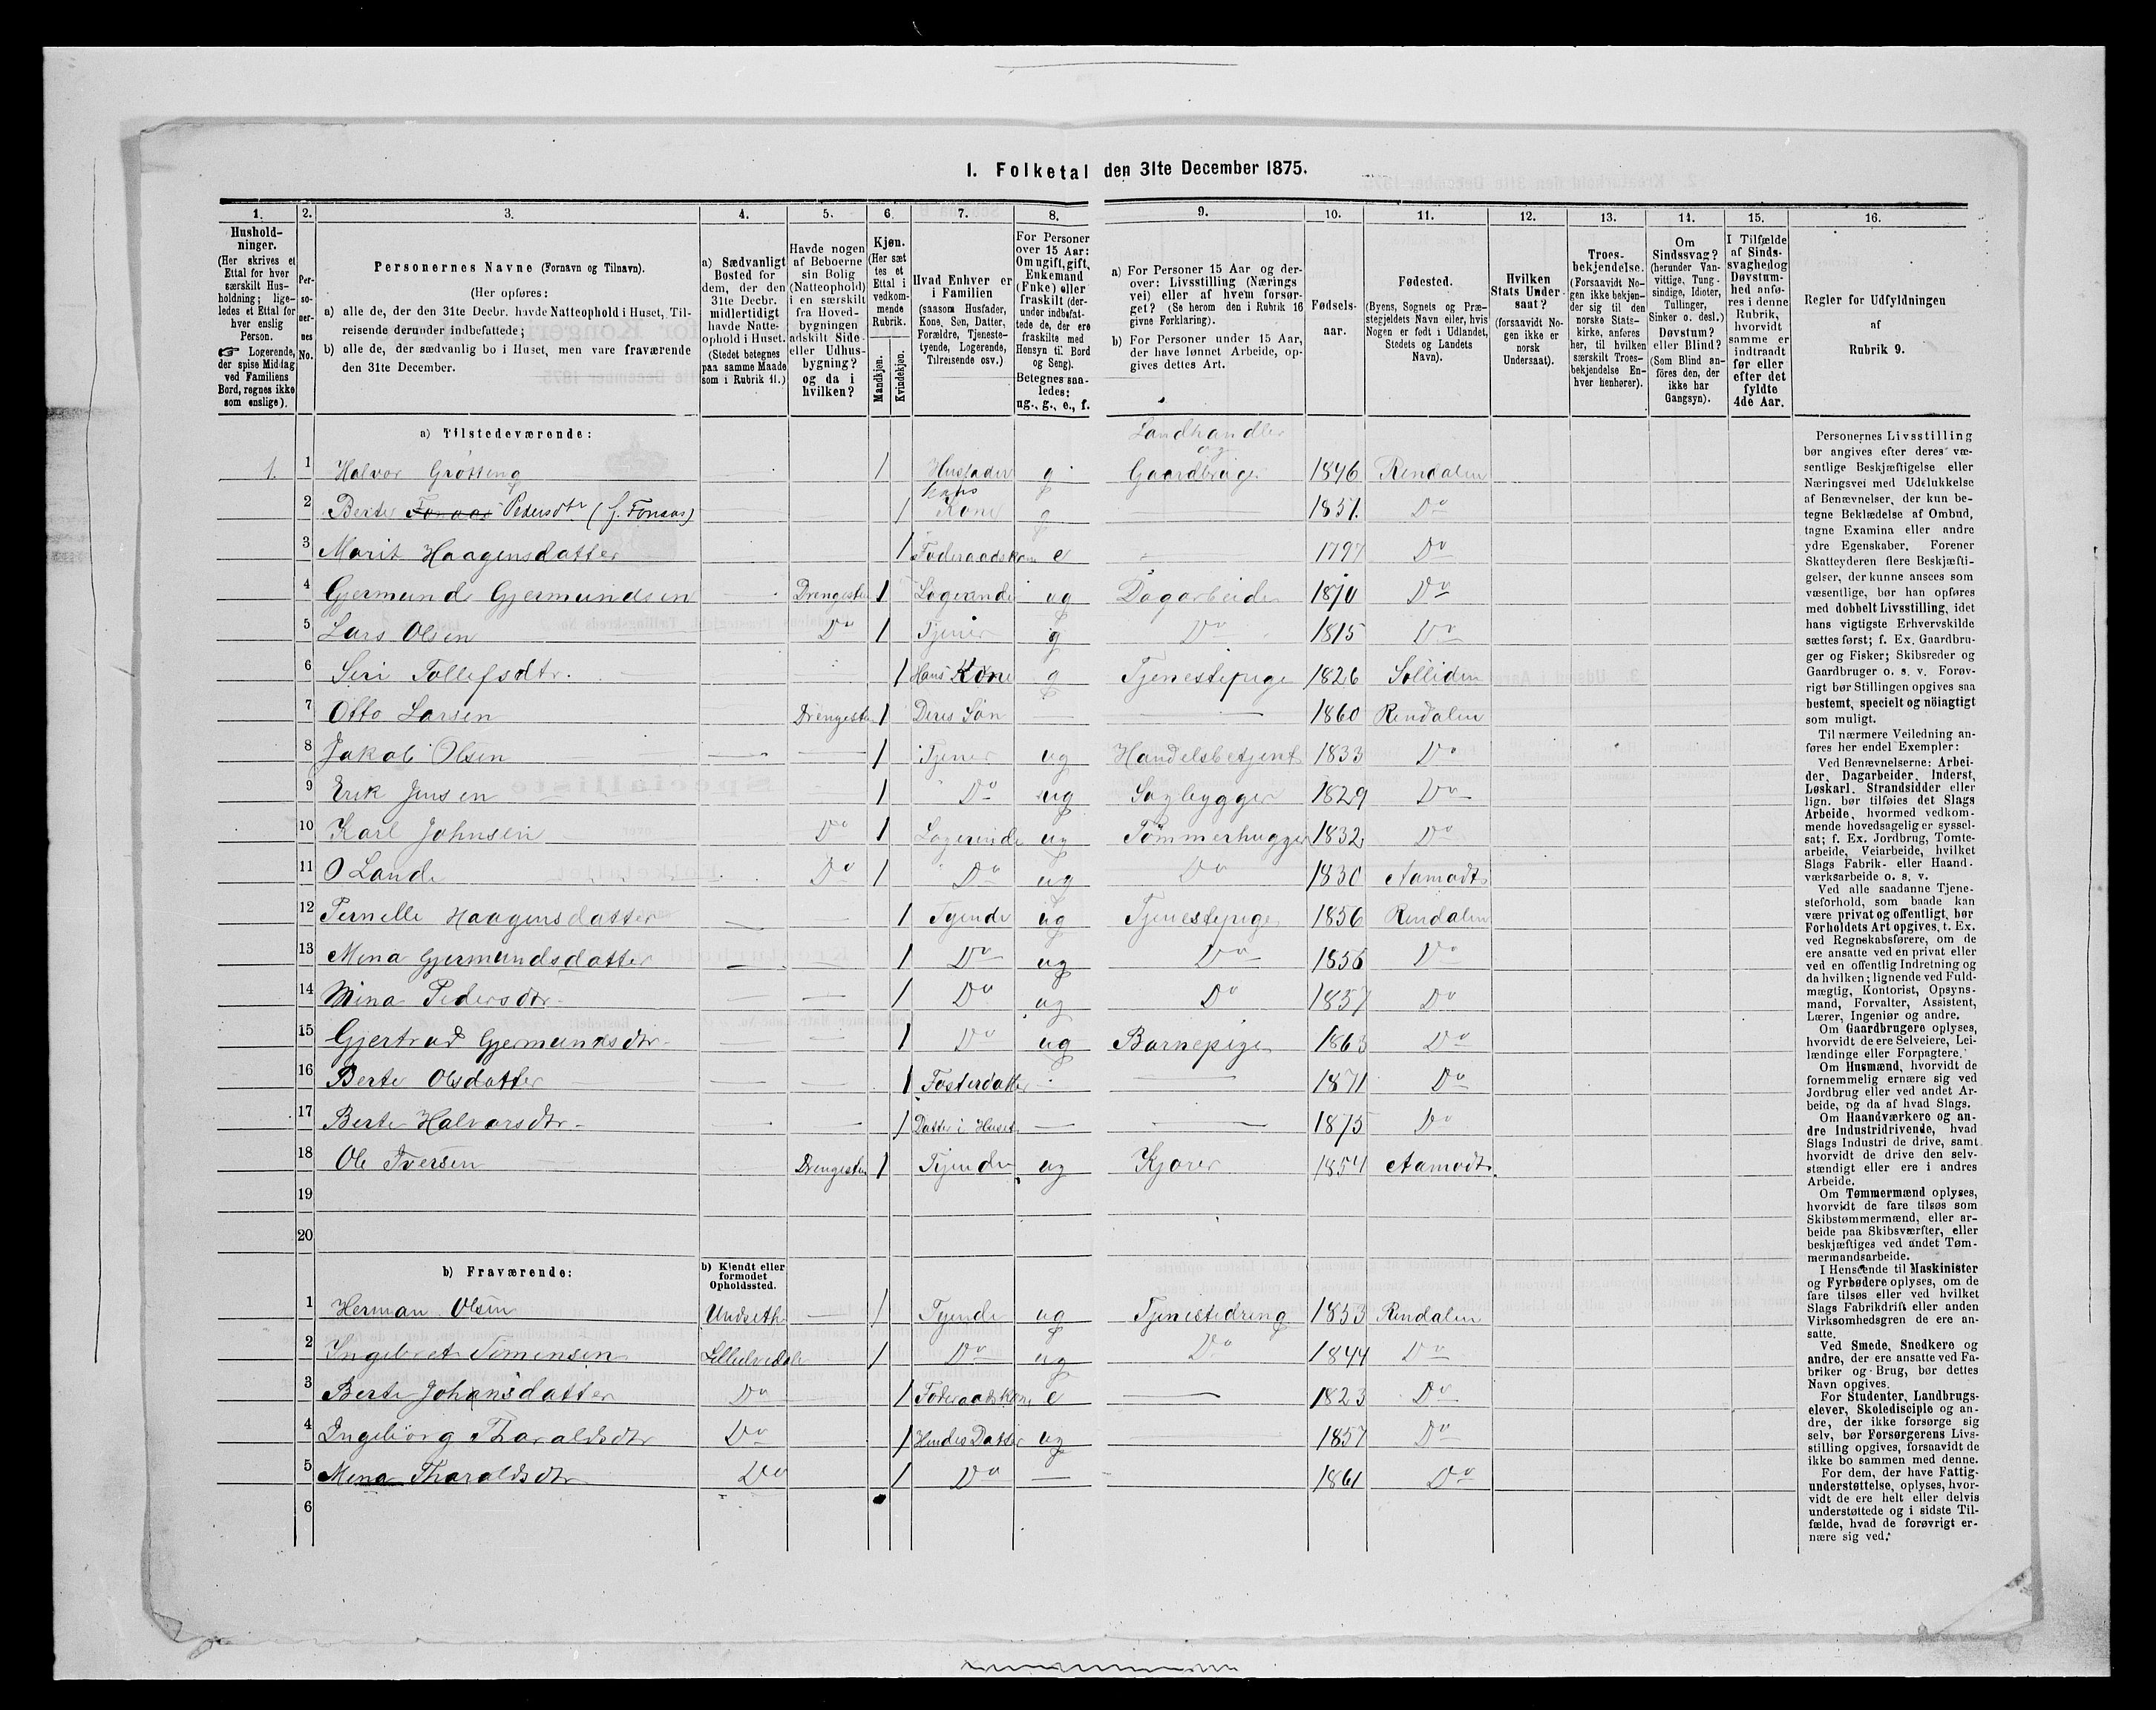 I. Folketal den 31te December 1875.
1. 2. 3. 4. 5. 6. 7. 8. 9. 10. 11. 12. 13. 14. 15. 16.
Hushold-
ninger.
(Her skrives et
Ettal for hver
særskilt Hus-
holdning; lige-
ledes et Ettal for
hver enslig
Person.
☞ Logerende,
der spise Middag
ved Familiens
Bord, regnes ikke
som enslige).
Per-
so-
ner-
nes
No.
Personernes Navne (Fornavn og Tilnavn).
(Her opføres:
a) alle de, der den 31te Decbr. havde Natteophold i Huset, Til-
reisende derunder indbefattede;
b) alle de, der sædvanlig bo i Huset, men vare fraværende
den 31te December.
a) Sædvanligt
Bosted for
dem, der den
31te Decbr.
midlertidigt
havde Natte-
ophold i Huset.
(Stedet betegnes
paa samme Maade
som i Rubrik 11.)
Havde nogen
af Beboerne
sin Bolig
(Natteophold)
i en særskilt
fra Hoved-
bygningen
adskilt Side-
eller Udhus-
bygning?
og da i
hvilken?
Kjøn.
(Her sæt
tes et
Ettal i
vedkom-
mende
Rubrik.
Mandkjøn.
Kvindekjøn.
Hvad Enhver er
i Familien
(saasom Husfader,
Kone, Søn, Datter,
Forældre, Tjeneste-
tyende, Logerende,
Tilreisende osv.)
For Personer
over 15 Aar:
Om ugift, gift,
Enkemand
(Enke) eller
fraskilt (der-
under indbefat-
tede de, der ere
fraskilte med
Hensyn til Bord
og Seng).
Betegnes saa-
ledes:
ug., g., e., f.
a) For Personer 15 Aar og der-
over: Livsstilling (Nærings
vei) eller af hvem forsør-
get? (Se herom den i Rubrik 16
givne Forklaring).
b) For Personer under 15 Aar,
der have lønnet Arbeide, op-
gives dettes Art.
Fødsels-
aar.
Fødested.
(Byens, Sognets og Præ-
stegjeldets Navn eller, hvis
Nogen er født i Udlandet,
Stedets og Landets
Navn).
Hvilken
Stats Under-
saat?
(forsaavidt No-
gen ikke er
norsk
Undersaat).
Troes-
bekjendelse.
(Forsaavidt No-
gen ikke bekjen-
der sig til den
norske Stats-
kirke, anføres
her, til hvilken
særskilt Troes-
bekjendelse En-
hver henhører).
Om
Sindssvag?
(herunder Van-
vittige, Tung-
sindige, Idioter,
Tullinger,
Sinker o. desl.)
Døvstum?
eller Blind?
(Som Blind an-
føres den, der
ikke har
Gangsyn).
I Tilfælde
af Sinds-
svaghed og
Døvstum-
hed anfø-
res i denne
Rubrik,
hvorvidt
samme er
indtraadt
før eller
efter det
fyldte
4de Aar.
Regler for Udfyldningen
af
Rubrik 9.
a) Tilstedeværende:
Landhandler
og
1. 1 Halvor Grötting 1 Husfader g Gaardbruger 1846 Rendalen
2 Berte Fonaas Pedersdtr (f. Fonaas) 1 hans Kone g 1851. Do
3 Marit Haagensdatter 1 Föderaadskone e 1797 Do
4 Gjermund Gjermundsen Drengestu 1 Logerende ug Dagarbeider 1870 Do
5 Lars Olsen Do 1 Tjener g Do 1815 Do
6 Siri Tollefsdtr. 1 Hans Kone g Tjenestepige 1826 Solliden
7 Otto Larsen Drengestu 1 Deres Sön 1860 Rendalen
8 Jakob Olsen 1 Tjener ug Handelsbetjent 1833 Do
9 Erik Jensen 1 Do ug Sagbygger 1829 Do
10 Karl Johnsen Do 1 Logerende ug Tömmerhugger 1832 Do
11 O Lande Do 1 Do ug Do 1830 Aamodt
12 Pernelle Haagensdatter 1 Tyende ug Tjenestepige 1856 Rendalen
13 Mina Gjermundsdatter 1 Do ug Do 1856 Do
14 Mina Pedersdtr 1 Do ug Do 1857 Do
15 Gjertrud Gjermundsdtr 1 Do ug Barnepige 1863 Do
16 Berte Olsdatter 1 Fosterdatter 1871 Do
17 Berte Halvorsdtr 1 Datter i Huset 1875 Do
18 Ole Iversen Drengestu 1 Tyende ug Kjörer 1854 Aamodt
19
20
b) Fraværende:
b) Kjendt eller
formodet
Opholdssted.
1 Herman Olsen Undseth 1 Tyende ug Tjenestedreng 1853 Rendalen
2 Ingebret Simensen Lilleelvedale 1 Do ug Do 1844 Do
3 Berte Johansdatter Do 1 Foderaadskone e 1823 Do
4 Ingebörg Tharaldsdtr Do 1 Hendes Datter ug 1857 Do
5 Mina Tharaldsdtr Do 1 Do 1861 Do
6
Personernes Livsstilling
bør angives efter deres væ-
sentlige Beskjæftigelse eller
Næringsvei med Udelukkelse
af Benævnelser, der kun be-
tegne Beklædelse af Ombud,
tagne Examina eller andre
ydre Egenskaber. Forener
Skatteyderen flere Beskjæfti-
gelser, der kunne ansees som
væsentlige, bør han opføres
med dobbelt Livsstilling, idet
hans vigtigste Erhvervskilde
sættes først; f. Ex. Gaardbru-
ger og Fisker; Skibsreder og
Gaardbruger o. s. v. Forøv-
rigt bør Stillingen opgives saa
bestemt, specielt og nöiagtigt
som muligt.
Til nærmere Veiledning an-
føres her endel Exempler:
Ved Benævnelserne: Arbei-
der, Dagarbeider, Inderst,
Løskarl, Strandsidder eller
lign. bør tilføies det Slags
Arbeide, hvormed vedkom-
mende hovedsagelig er syssel-
sat; f. Ex. Jordbrug, Tomte-
arbeide, Veiarbeide, hvilket
Slags Fabrik- eller Haand-
værksarbeide o. s. v.
Ved alle saadanne Tjene-
steforhold, som baade kan
være privat og offentligt, bør
Forholdets Art opgives, t. Ex.
ved Regnskabsførere, om de
ere ansatte ved en privat eller
ved en offentlig Indretning og
da hvilken; lignende ved Fuld-
mægtig, Kontorist, Opsyns-
mand, Forvalter, Assistent,
Lærer, Ingeniør og andre.
Om Gaardbrugere oplyses,
hvorvidt de ere Selveiere, Lei-
lændinge eller Forpagtere.
Om Husmænd, hvorvidt de
fornemmelig ernære sig ved
Jordbrug eller ved andet Ar-
beide, og da af hvad Slags.
Om Haandværkere og an-
dre Industridrivende, hvad
Slags Industri de drive, samt
hvorvidt de drive den selv-
stændigt eller ere i andres
Arbeide.
Om Tømmermænd oplyses,
hvorvidt de fare tilsøs som
Skibstømmermænd, eller ar-
beide paa Skibsværfter, eller
beskjæftiges ved andet Tøm-
mermandsarbeide.
I Henseende til Maskinister
og Fyrbødere oplyses, om de
fare tilsøs eller ved hvilket
Slags Fabrikdrift eller anden
Virksomhedsgren de ere an-
satte.
Ved Smede, Snedkere og
andre, der ere ansatte ved Fa-
briker og Brug, bør dettes
Navn opgives.
For Studenter, Landbrugs-
elever, Skoledisciple og an-
dre, der ikke forsørge sig
selv, bør Forsørgerens Livs-
stilling opgives, forsaavidt de
ikke bo sammen med denne.
For dem, der have Fattig-
understøttelse, oplyses, hvor-
vidt de ere helt eller delvis
understøttede og i sidste Til-
fælde, hvad de forøvrigt er-
nære sig ved.